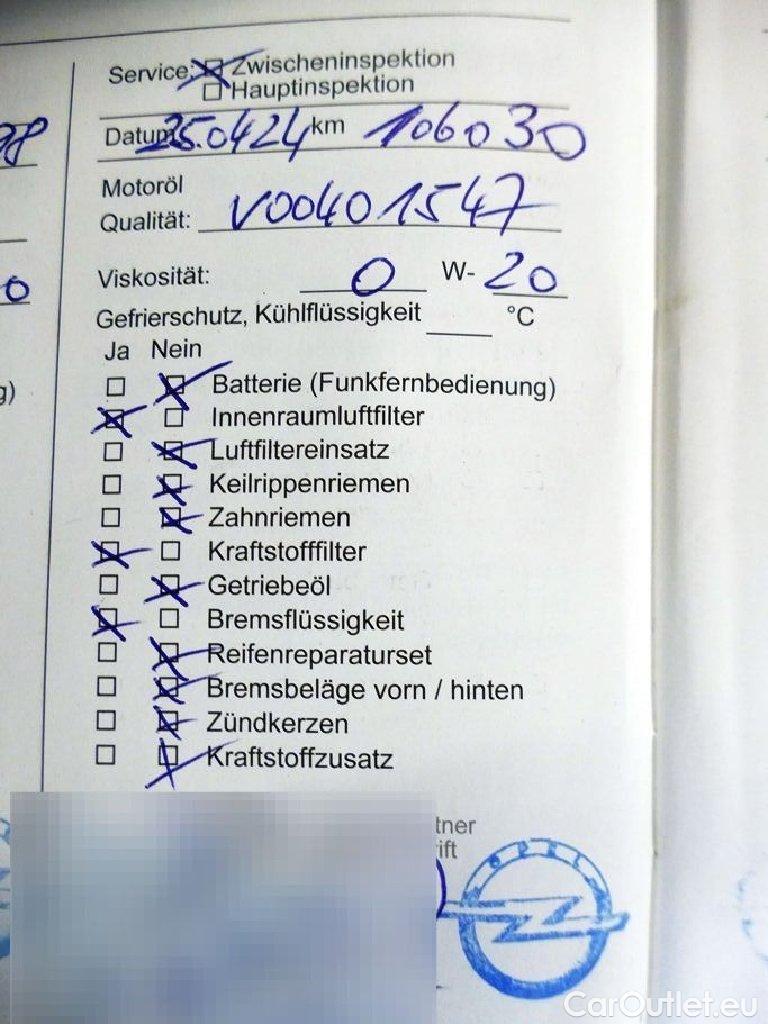 Service: ☒ Zwischeninspektion
☐ Hauptinspektion
Datum 25.04.24 km 106030
Motoröl
Qualität: V00401547
Viskosität: 0 W- 20
Gefrierschutz, Kühlflüssigkeit °C
Ja Nein
☐ ☒ Batterie (Funkfernbedienung)
☒ ☐ Innenraumluftfilter
☐ ☒ Luftfiltereinsatz
☐ ☒ Keilrippenriemen
☐ ☒ Zahnriemen
☒ ☐ Kraftstofffilter
☐ ☒ Getriebeöl
☒ ☐ Bremsflüssigkeit
☐ ☒ Reifenreparaturset
☐ ☒ Bremsbeläge vorn / hinten
☐ ☒ Zündkerzen
☐ ☒ Kraftstoffzusatz
tner
ift
CarOutlet.eu